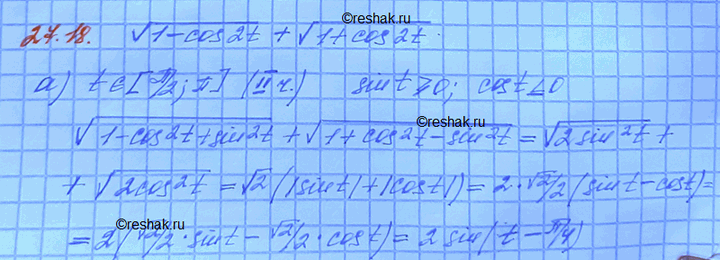 ©reshak.ru
27.18. √(1-cos2t) + √(1+cos2t).
а) t∈[π/2; π] (II ч.) sint≥0; cost≤0
√(1-cos²t+sin²t) + √(1+cos²t-sin²t) = √(2sin²t) +
©reshak.ru
+ √(2cos²t) = √2(|sint|+|cost|) = 2·√2/2(sint-cost)=
©reshak.ru
= 2(√2/2·sint - √2/2·cost) = 2sin(t-π/4)